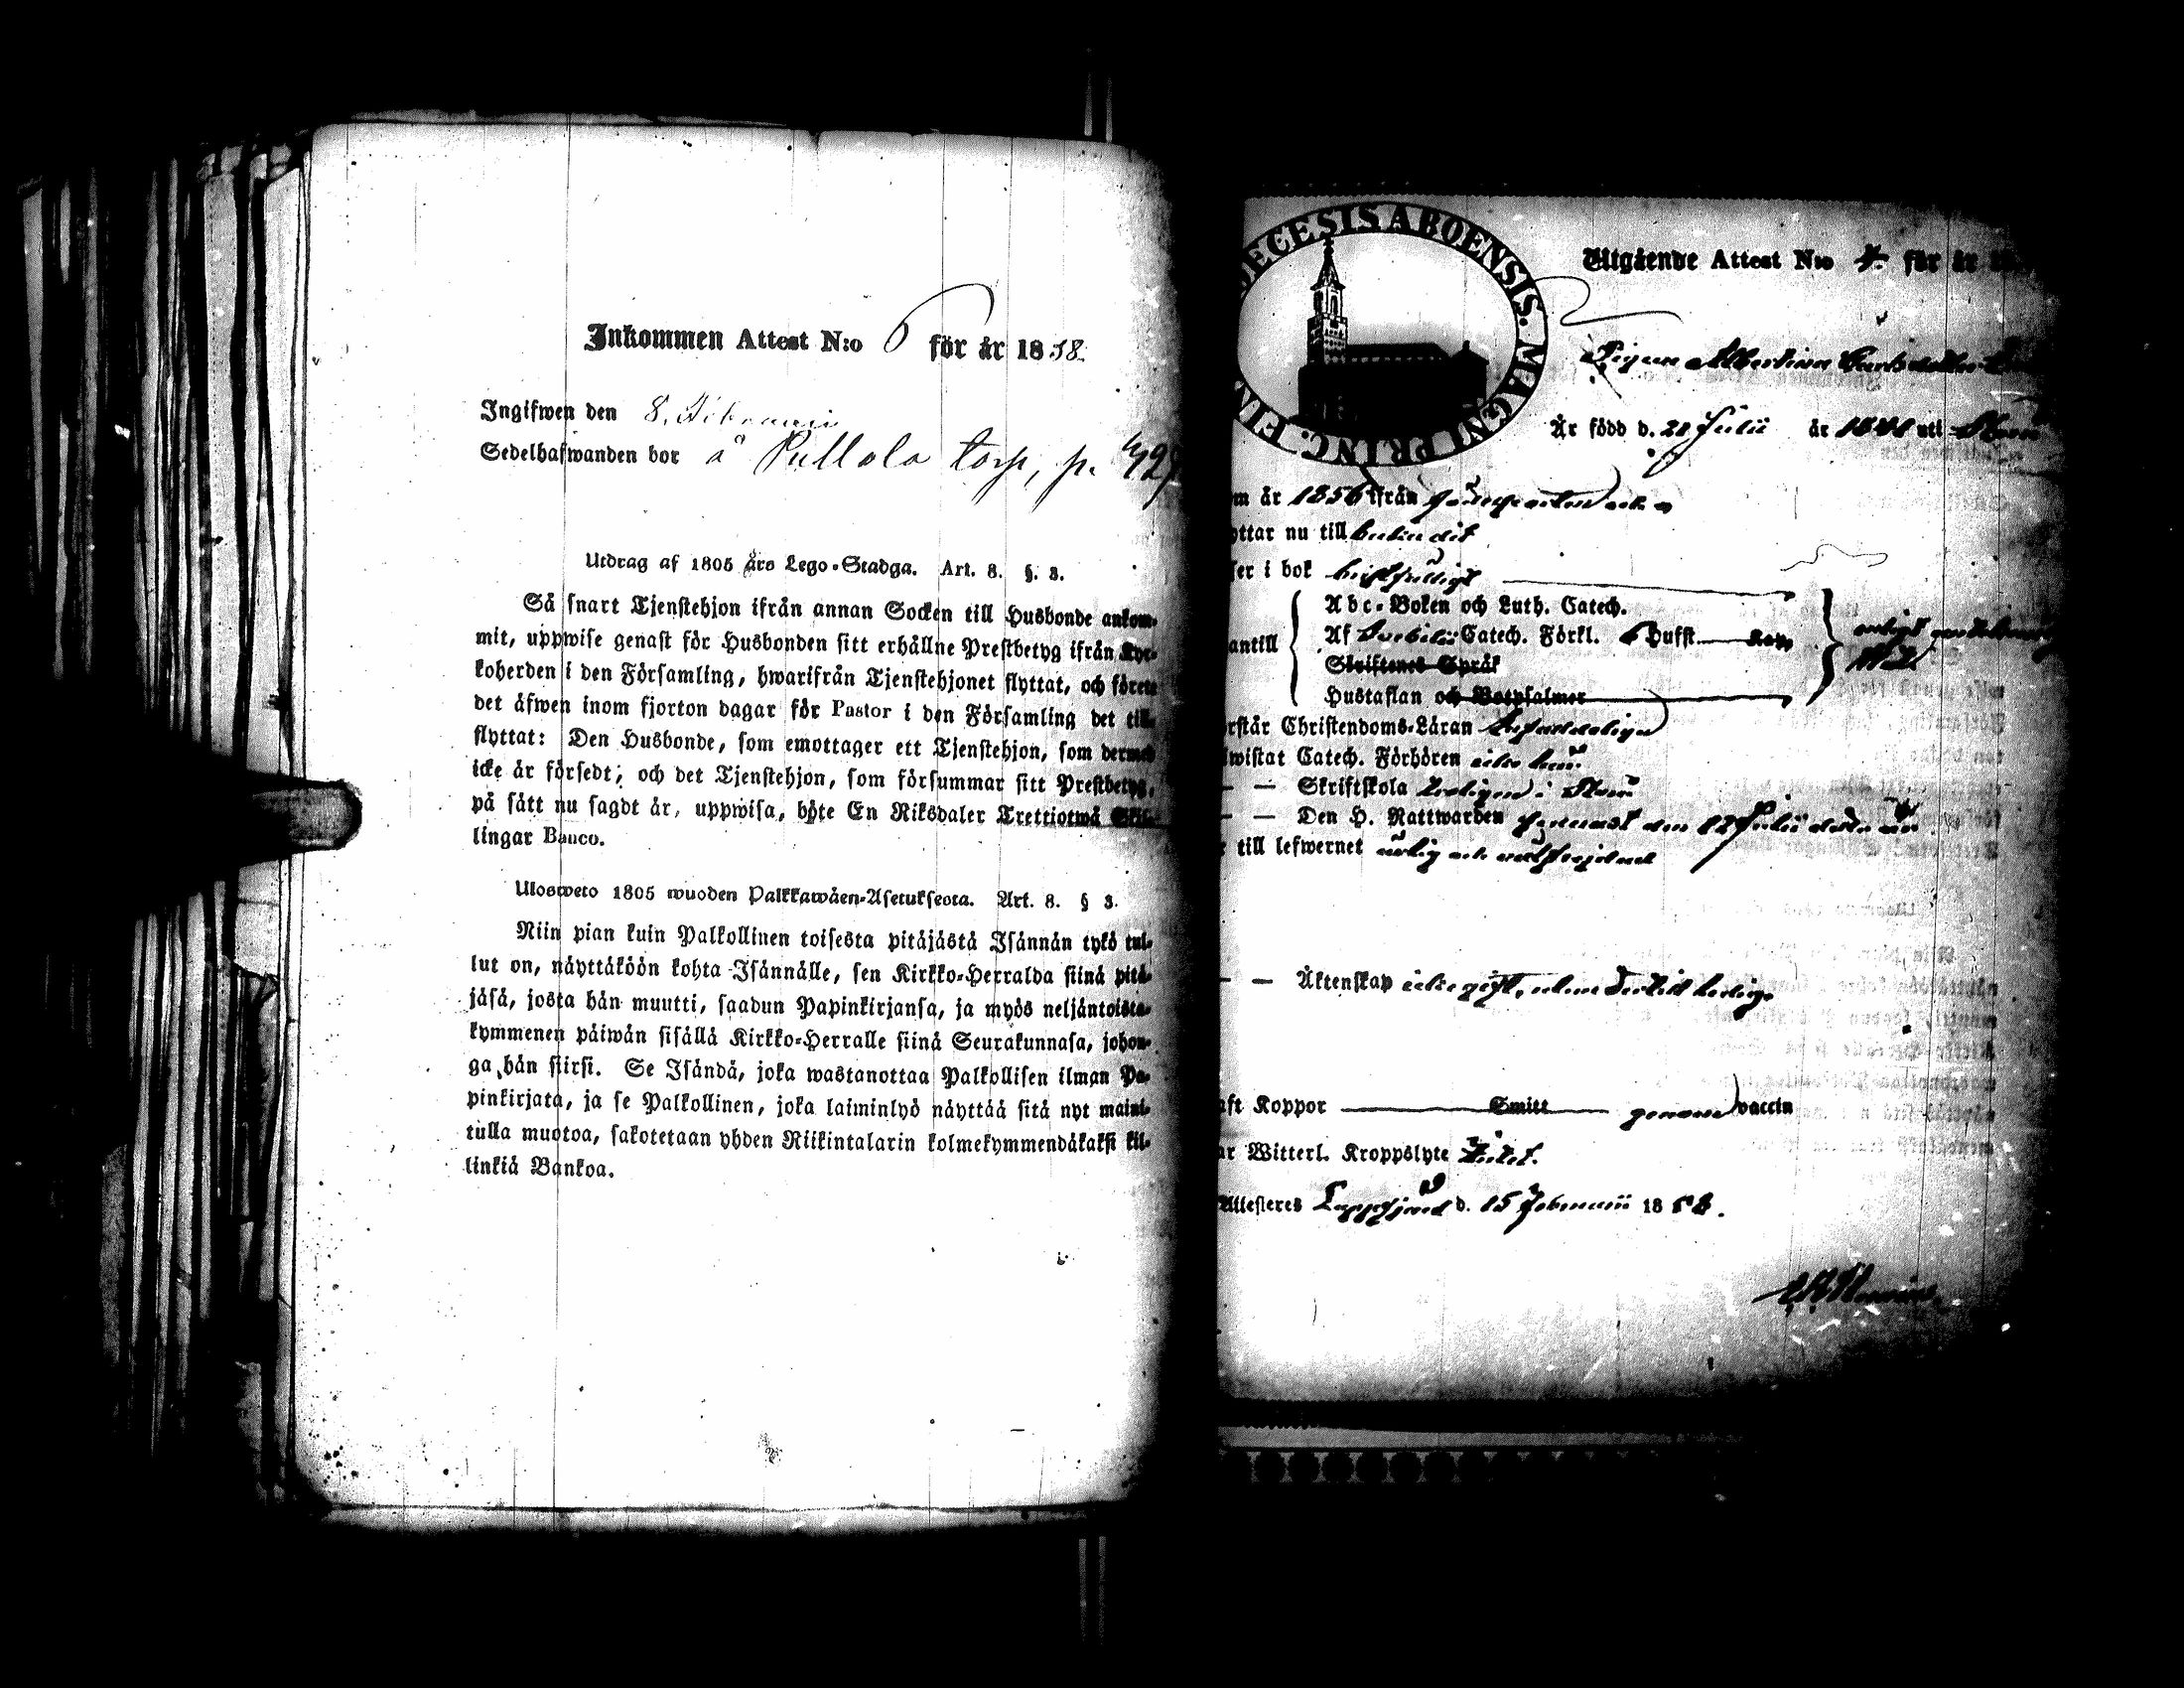 Inkommen Attest N:o 6 för år 1858.
Ingifwen den 8. Februarii
Sedelhafwanden bor å Pullola torp, p. 429
Utdrag af 1805 års Lego-Stadga. Art. 8. §. 3.
Så snart Tjenstehjon ifrån annan Socken till Husbonde ankom-
mit, uppwise genast för Husbonden sitt erhållne Prestbetyg ifrån Kyr-
koherden i den Församling, hwarifrån Tjenstehjonet flyttat, och förete
det äfwen inom fjorton dagar för Pastor i den Församling det till-
flyttat: Den Husbonde, som emottager ett Tjenstehjon, som dermed
icke är försedt; och det Tjenstehjon, som försummar sitt Prestbetyg,
på sätt nu sagdt är, uppwisa, böte En Riksdaler Trettiotwå Skil-
lingar Banco.
Ulosweto 1805 wuoden Palkkawäen-Asetuksesta. Art. 8. § 3.
Niin pian kuin Palkollinen toisesta pitäjästä Isännän tykö tul-
lut on, näyttäköön kohta Isännälle, sen Kirkko-Herralda siinä pitä-
jäsä, josta hän muutti, saadun Papinkirjansa, ja myös neljäntoista-
kymmenen päiwän sisällä Kirkko-Herralle siinä Seurakunnasa, johon-
ga hän siirsi. Se Isändä, joka wastanottaa Palkollisen ilman Pa-
pinkirjata, ja se Palkollinen, joka laiminlyö näyttää sitä nyt maini-
tulla muotoa, sakotetaan yhden Riikintalarin kolmekymmendäkaksi kil-
linkiä Bankoa.
DECESIS ABOENSIS. MAGNI PRINC. FIN
Utgående Attest N:o 4. för år
Pigan Albertina Carlsdotter
Är född d. 21 Julii år 1841 uti
om år 1856 ifrån
yttar nu till
ser i bok
antill
Abc-Boken och Luth. Catech.
Af Svebilii Catech. Förkl. 6 Hufst. Kap.
Skriftenes Språk
Hustaflan och Botpsalmer
rstår Christendoms-Läran
iwistat Catech. Förhören
— — Skriftskola
— — Den H. Nattwarden senast den 12 Julii
r till lefwernet ärlig och
— — Äktenskap icke gift, utan dertill ledig.
aft Koppor Smitt genom vaccin
ar Witterl. Kroppslyte
Attesteres Lappfjerd d. 15 Februarii 1858.